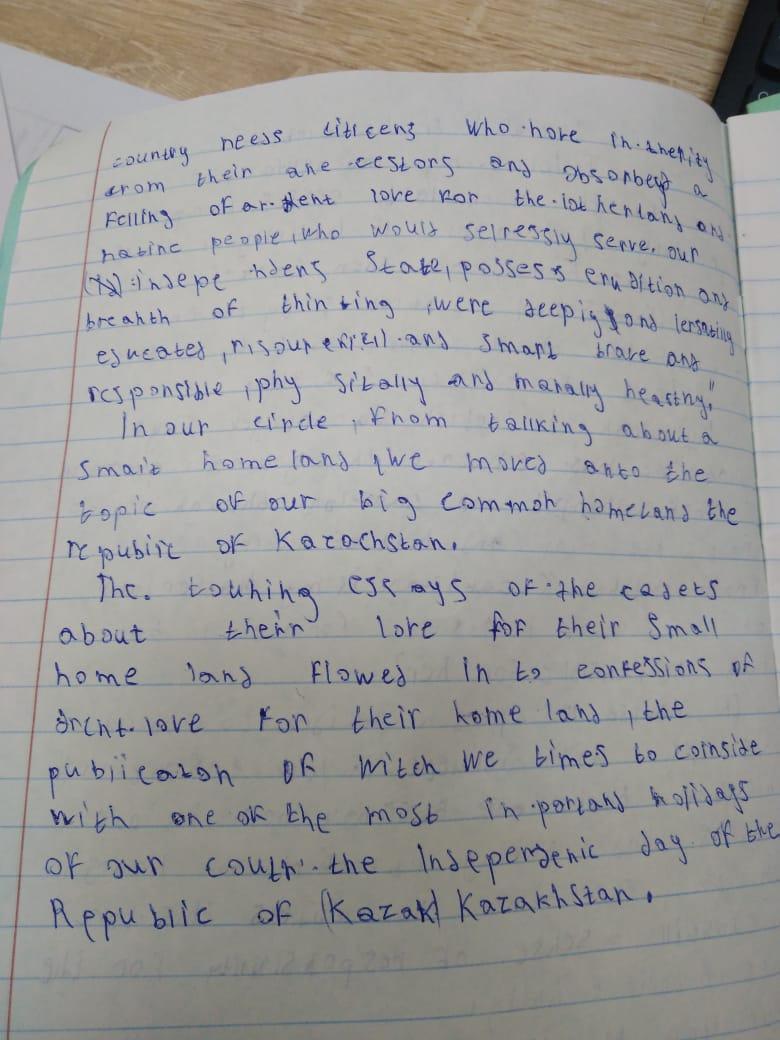 country needs citicens who hove in.therity
from their ane cestors and obsorbeyd a
Felling of ar.dent love For the.iot herland and
native people, who would selressly serve. our
indepe ndens State, possess erudition and
breahth of thinking, were deepig and versating
educated, risourexfill.and smart brave and
responsible, phy sitally and manally heasthy."
In our circle, From tallking about a
smait home land, we moved anto the
topic of our big common homeland the
republic of Kazachstan.
The. touhing essays of.the cadets
about their love for their Small
home land flowed in to confessions of
ardent.love For their home land, the
publication of witch we times to coinside
with one of the most in.portand hollidays
of our coutr. the IndepenDenic day of the
Republic of (Kazak) Kazakhstan.